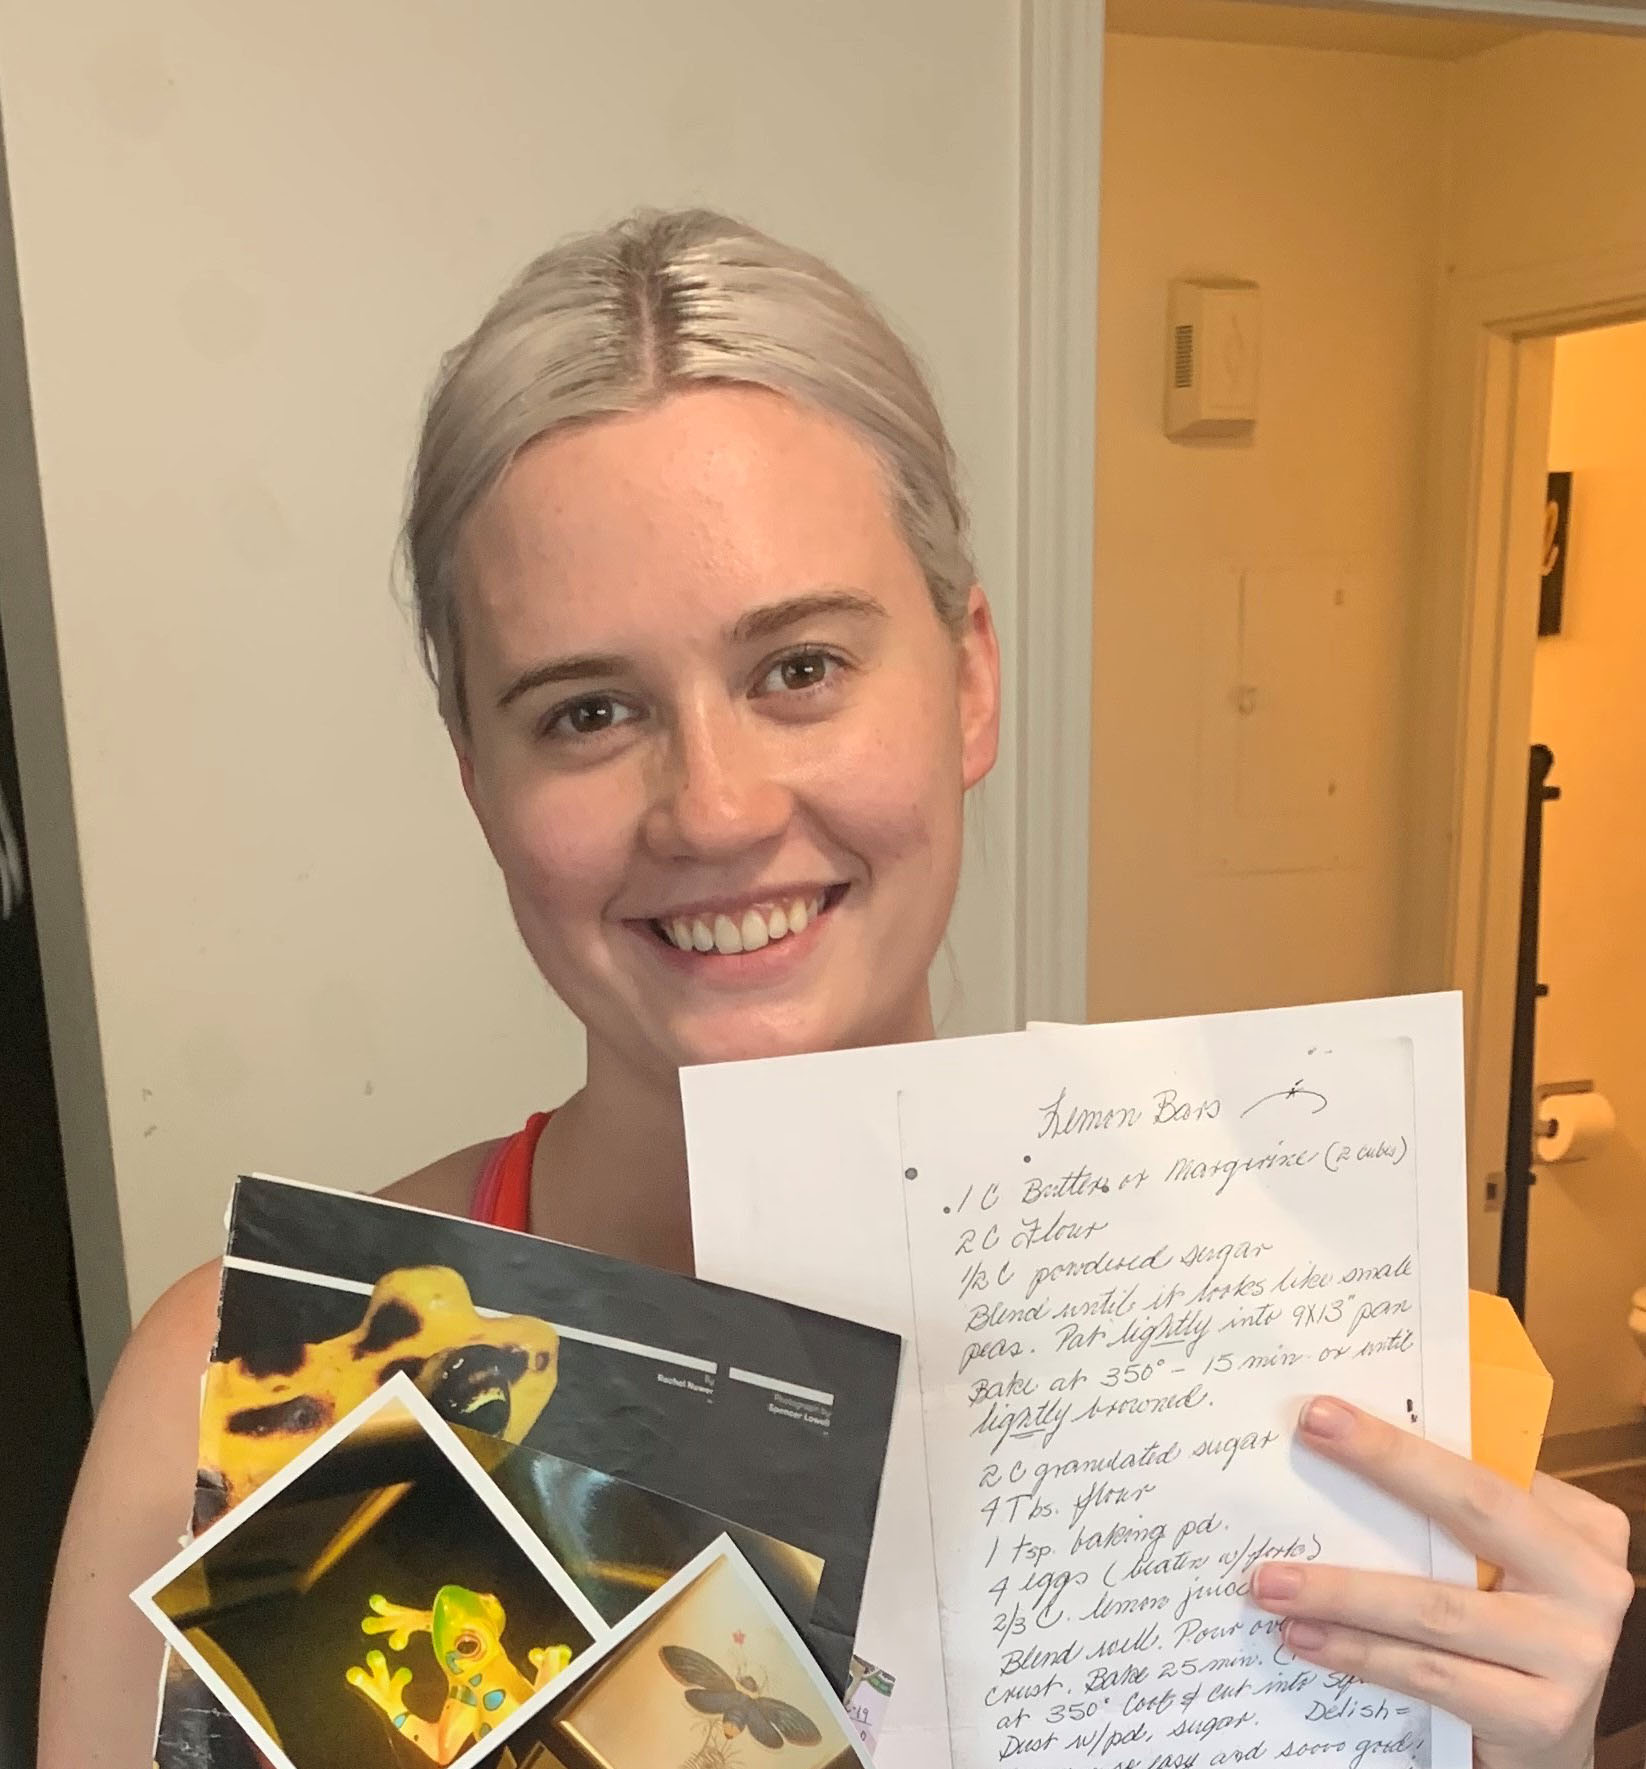 Lemon Bars
1 C Butter or Margerine (2 cubes)
2 C Flour
1/2 C powdered sugar
Blend until it looks like small
peas. Pat lightly into 9X13" pan
Bake at 350° - 15 min or until
lightly browned.
2 C granulated sugar
4 Tbs. flour
1 tsp. baking pd.
4 eggs (beaten w/fork)
2/3 C. lemon juice
Blend well. Pour
crust. Bake 25 min.
at 350° Cool & cut into
Dust w/pd. sugar. Delish=
so easy and soooo good!
By
Rachel Nuwer
Photograph by
Spencer Lowell